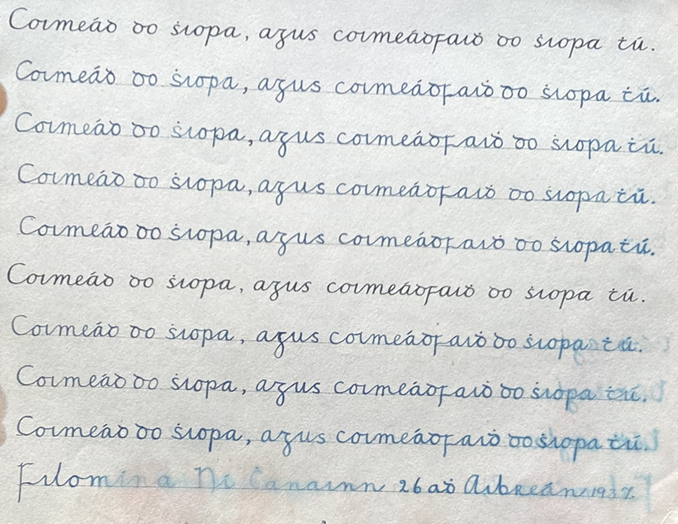 Coimeád do ṡiopa, agus coimeádfaiḋ do ṡiopa tú.
Coimeád do ṡiopa, agus coimeádfaiḋ do ṡiopa tú.
Coimeád do ṡiopa, agus coimeádfaiḋ do ṡiopa tú.
Coimeád do ṡiopa, agus coimeádfaiḋ do ṡiopa tú.
Coimeád do ṡiopa, agus coimeádfaiḋ do ṡiopa tú.
Coimeád do ṡiopa, agus coimeádfaiḋ do ṡiopa tú.
Coimeád do ṡiopa, agus coimeádfaiḋ do ṡiopa tú.
Coimeád do ṡiopa, agus coimeádfaiḋ do ṡiopa tú.
Coimeád do ṡiopa, agus coimeádfaiḋ do ṡiopa tú.
Filomina Ní Canainn 26aḋ Aibreán